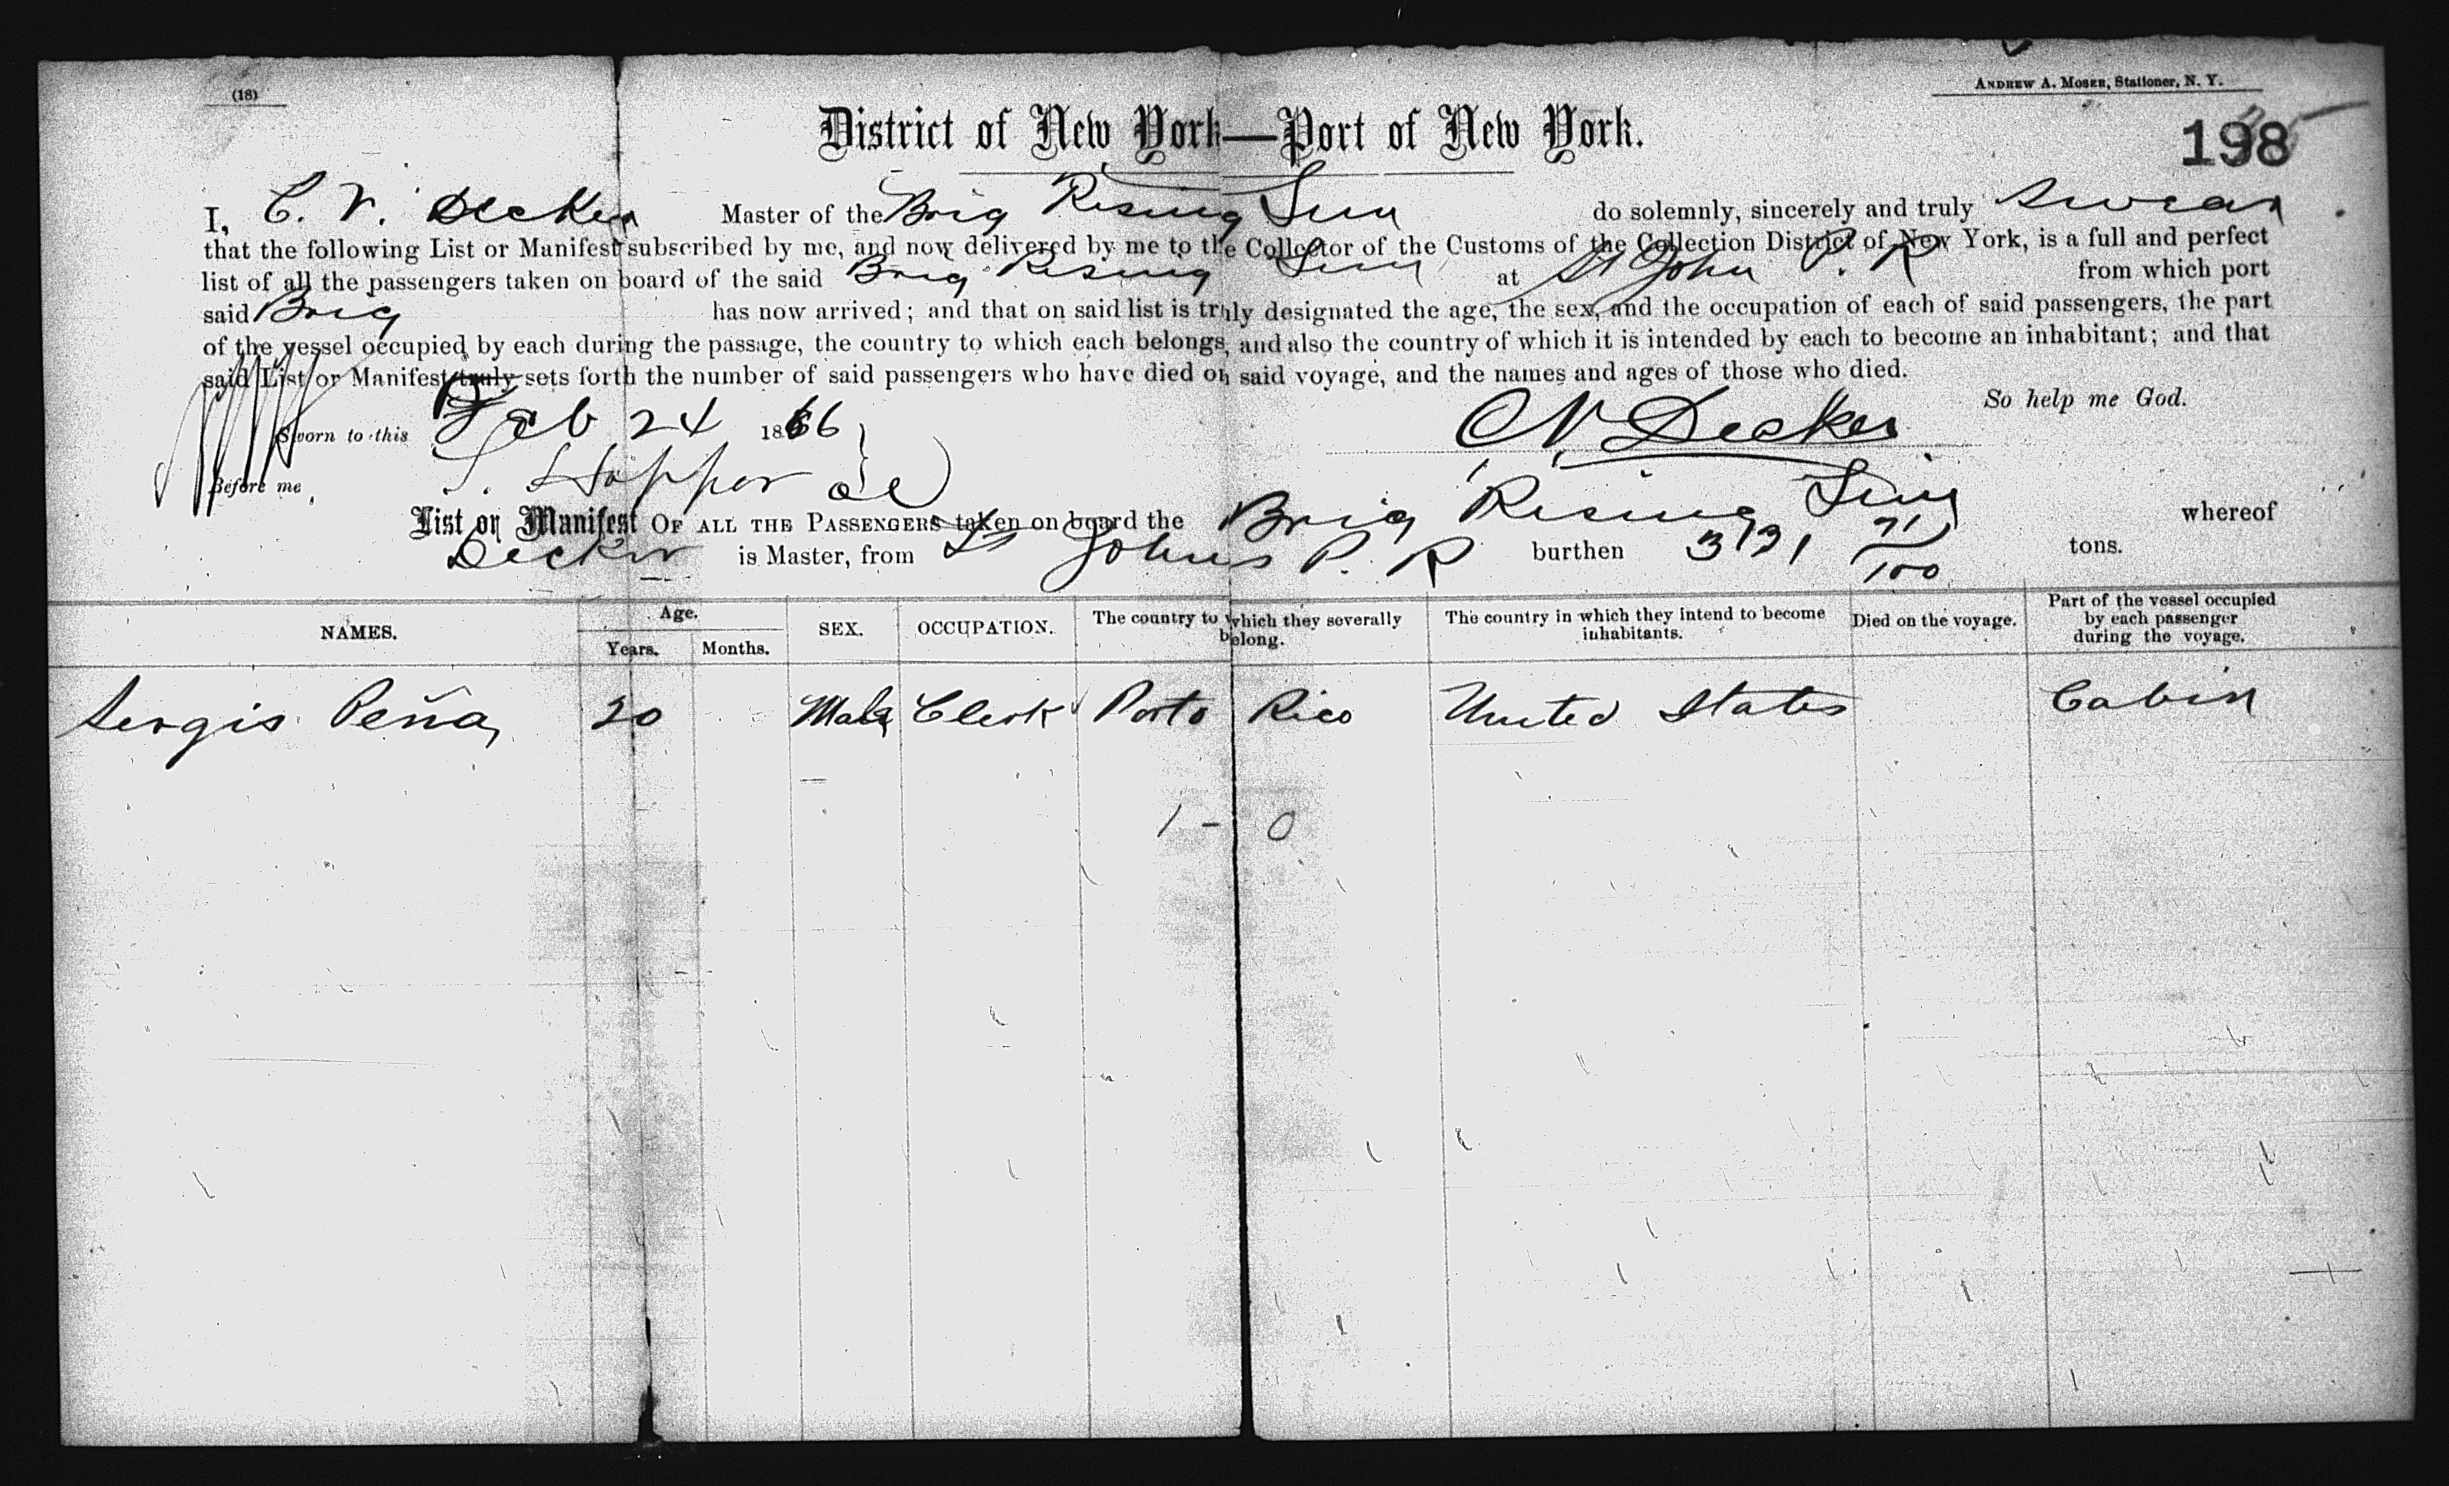 (18)
ANDREW A. MOSER, Stationer, N. Y.
District of New York—Port of New York.
198
I, C. V. Decker Master of the Brig Rising Sun do solemnly, sincerely and truly Swear
that the following List or Manifest subscribed by me, and now delivered by me to the Collector of the Customs of the Collection District of New York, is a full and perfect
list of all the passengers taken on board of the said Brig Rising Sun at St John P. R from which port
said Brig has now arrived; and that on said list is truly designated the age, the sex, and the occupation of each of said passengers, the part
of the vessel occupied by each during the passage, the country to which each belongs, and also the country of which it is intended by each to become an inhabitant; and that
said List or Manifest truly sets forth the number of said passengers who have died on said voyage, and the names and ages of those who died.
So help me God.
Sworn to this Feb 24 1866
Decker
Before me
List or Manifest OF ALL THE PASSENGERS taken on board the Brig Rising Sun whereof
Decker is Master, from St Johns P. R burthen 71/100 tons.
NAMES. Age. Years. Months. SEX. OCCUPATION. The country to which they severally belong. The country in which they intend to become inhabitants. Died on the voyage. Part of the vessel occupied by each passenger during the voyage.
Sergis Peña 20 Male Clerk Porto Rico United States Cabin
1 - 0